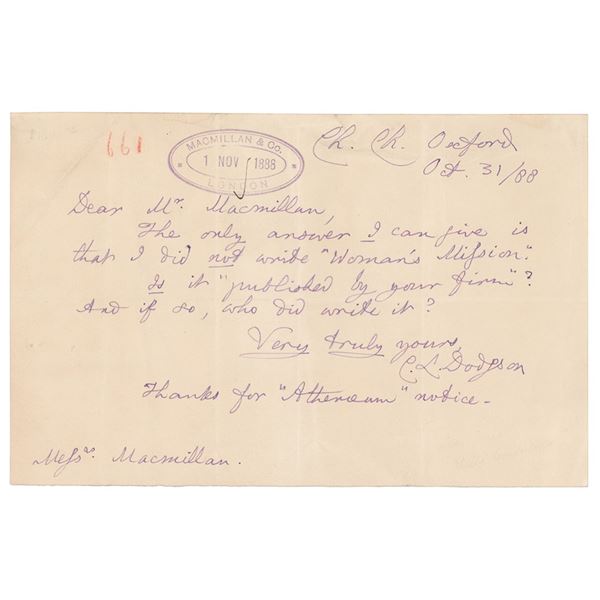 661
MACMILLAN & Co.
1 NOV 1888
LONDON
Ch. Ch. Oxford
Oct. 31/88
Dear Mr. Macmillan,
The only answer I can give is
that I did not write "Woman's Mission".
Is it "published by your firm"?
And if so, who did write it?
Very truly yours,
C. L. Dodgson
Thanks for "Athenæum" notice.
Messrs. Macmillan.